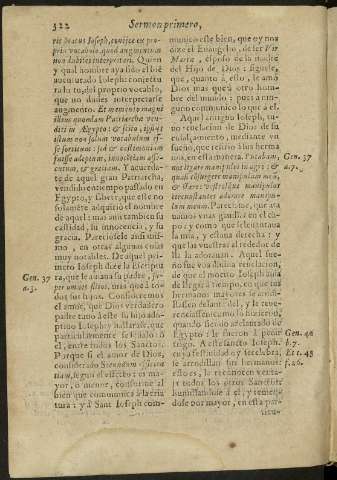 322 Sermon primero,
rit beatus Ioseph, conijce ex pro-
prio vocabulo, quod augmentum
non dubites interpretari. Quien
y qual hombre aya sido el bie
nauenturado Ioseph: conjectu
ra lo tu, del proprio vocablo,
que no dudes interpretarse
augmento. Et memento magni
illius quondam Patriarchæ ven-
diti in Ægypto: & scito, ipsius
istum non solum vocabulum esse
sortitum: sed & castimoniam
fuisse adeptum, innocentiam assecu-
tum, & gratiam. Y acuerda-
te de aquel gran Patriarcha,
vendido en tiempo passado en
Egypto, y sabete que este no
solamẽte adquirio el nombre
de aquel: mas aun tambien su
castidad, su innocencia, y su
gracia. Pareciosele assi mis-
mo, en otras algunas cosas
muy notables. De aquel pri-
mero Ioseph dize la Escriptu
Gen. 37 ra, que le amaua su padre, su-
a.3. per omnes filios, mas que a to-
dos sus hijos. Consideremos
el amor, que Dios verdadero
padre tuuo a este su hijo ado-
ptiuo Ioseph: y hallarse ha, que
particularmente se señalo
el, entre todos los Sanctos.
Porque si el amor de Dios,
considerado Secundum essentiam
tiam, segun el effecto: es ma-
yor, o menor, conforme al
bien que communica a la cria
tura: y a Sant Ioseph com-
munico este bien, que oy nos
dize el Euangelio, de ser Vir
Mariæ, esposo de la madre
del Hijo de Dios: siguese,
que, quanto a esto, le amò
Dios mas que a otro hom-
bre del mundo: pues a nin-
guno communico lo que a el.
Aquel antiguo Ioseph, tu-
uo reuelacion de Dios de su
ensalçamiento, mediante vn
sueño, que refirio a sus herma
nos, en esta manera. Putabam, Gen. 37
nos ligare manipulos in agro: & a.7.
quasi consurgere manipulum meũ,
& stare: vestrosque manipulos
circunstantes adorare manipu-
lum meum. Pareciame, que ata
uamos vnas gauillas en el cam-
po: y como que se leuantaua
la mia, y estaua derecha: y
que las vuestras al rededor de
lla la adorauan. Aquel sue-
ño fue vna diuina reuelacion,
de que el mesmo Ioseph auia
de llegar a tiempo, en que sus
hermanos mayores se arrodi-
llassen delante del, y le reue-
renciassen como lo hizieron,
quando siendo adelantado de
Egypto: le fueron a pedir Gen. 42
trigo. A este sancto Ioseph, b.7.
cuya festiuidad oy se celebra, Et c. 43
se arrodillan sus hermanos: f.26.
esto es, le reconocen venta-
ja todos los otros Sanctos
humillandose a el, y teniendo-
dole por mayor, en esta par-
ticu-